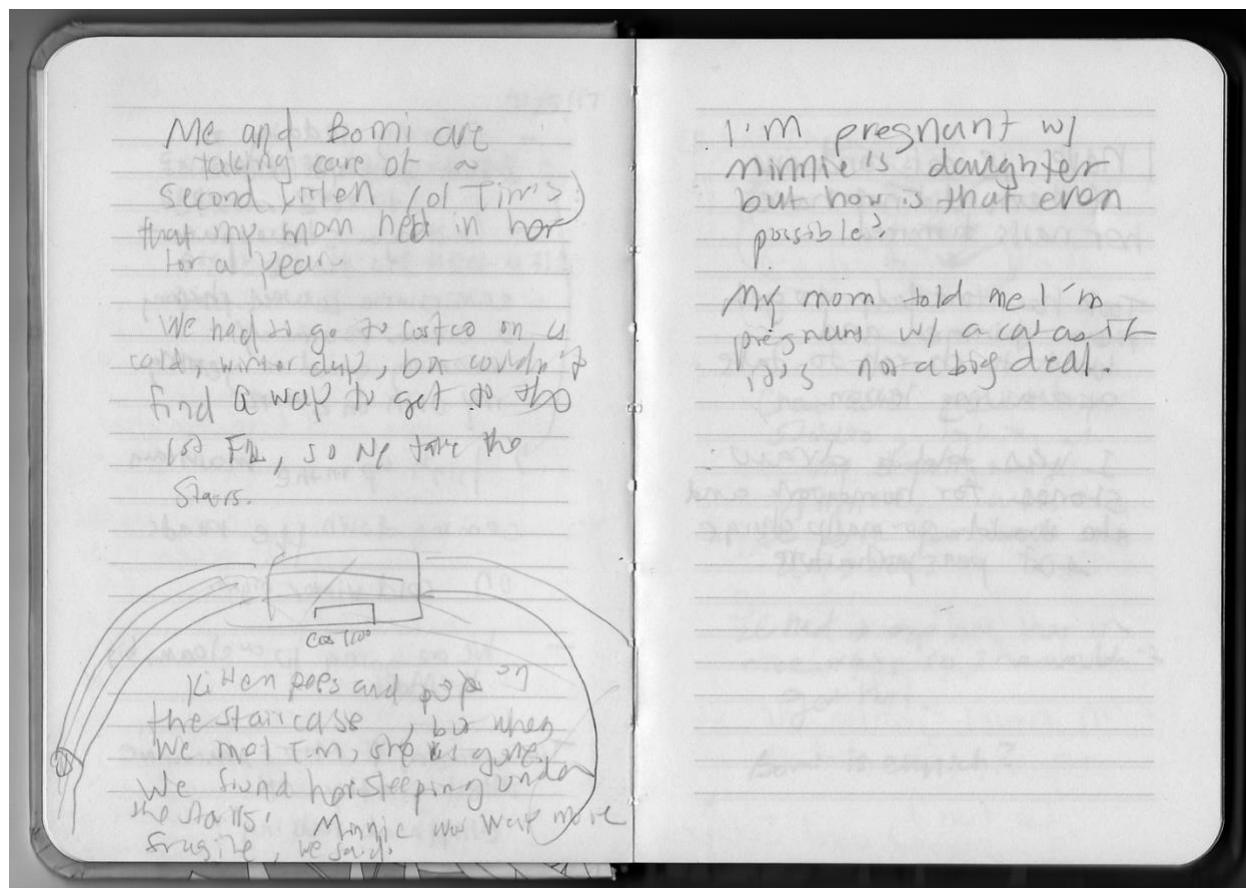 Me and Bomi are
taking care of a
second kitten (of Tim's)
that my mom held in her
for a year.
We had to go to costco on a
cold, winter day, but couldn't
find a way to get to the
1st Flr, so we take the
Stairs.
Costco
Kitten pees and poops on
the staircase, but when
we met Tim, she is gone.
We found her sleeping under
the stairs. Minnie was way more
fragile, he said.
I'm pregnant w/
Minnie's daughter
but how is that even
possible?
My mom told me I'm
pregnant w/ a cat as if
it's not a big deal.